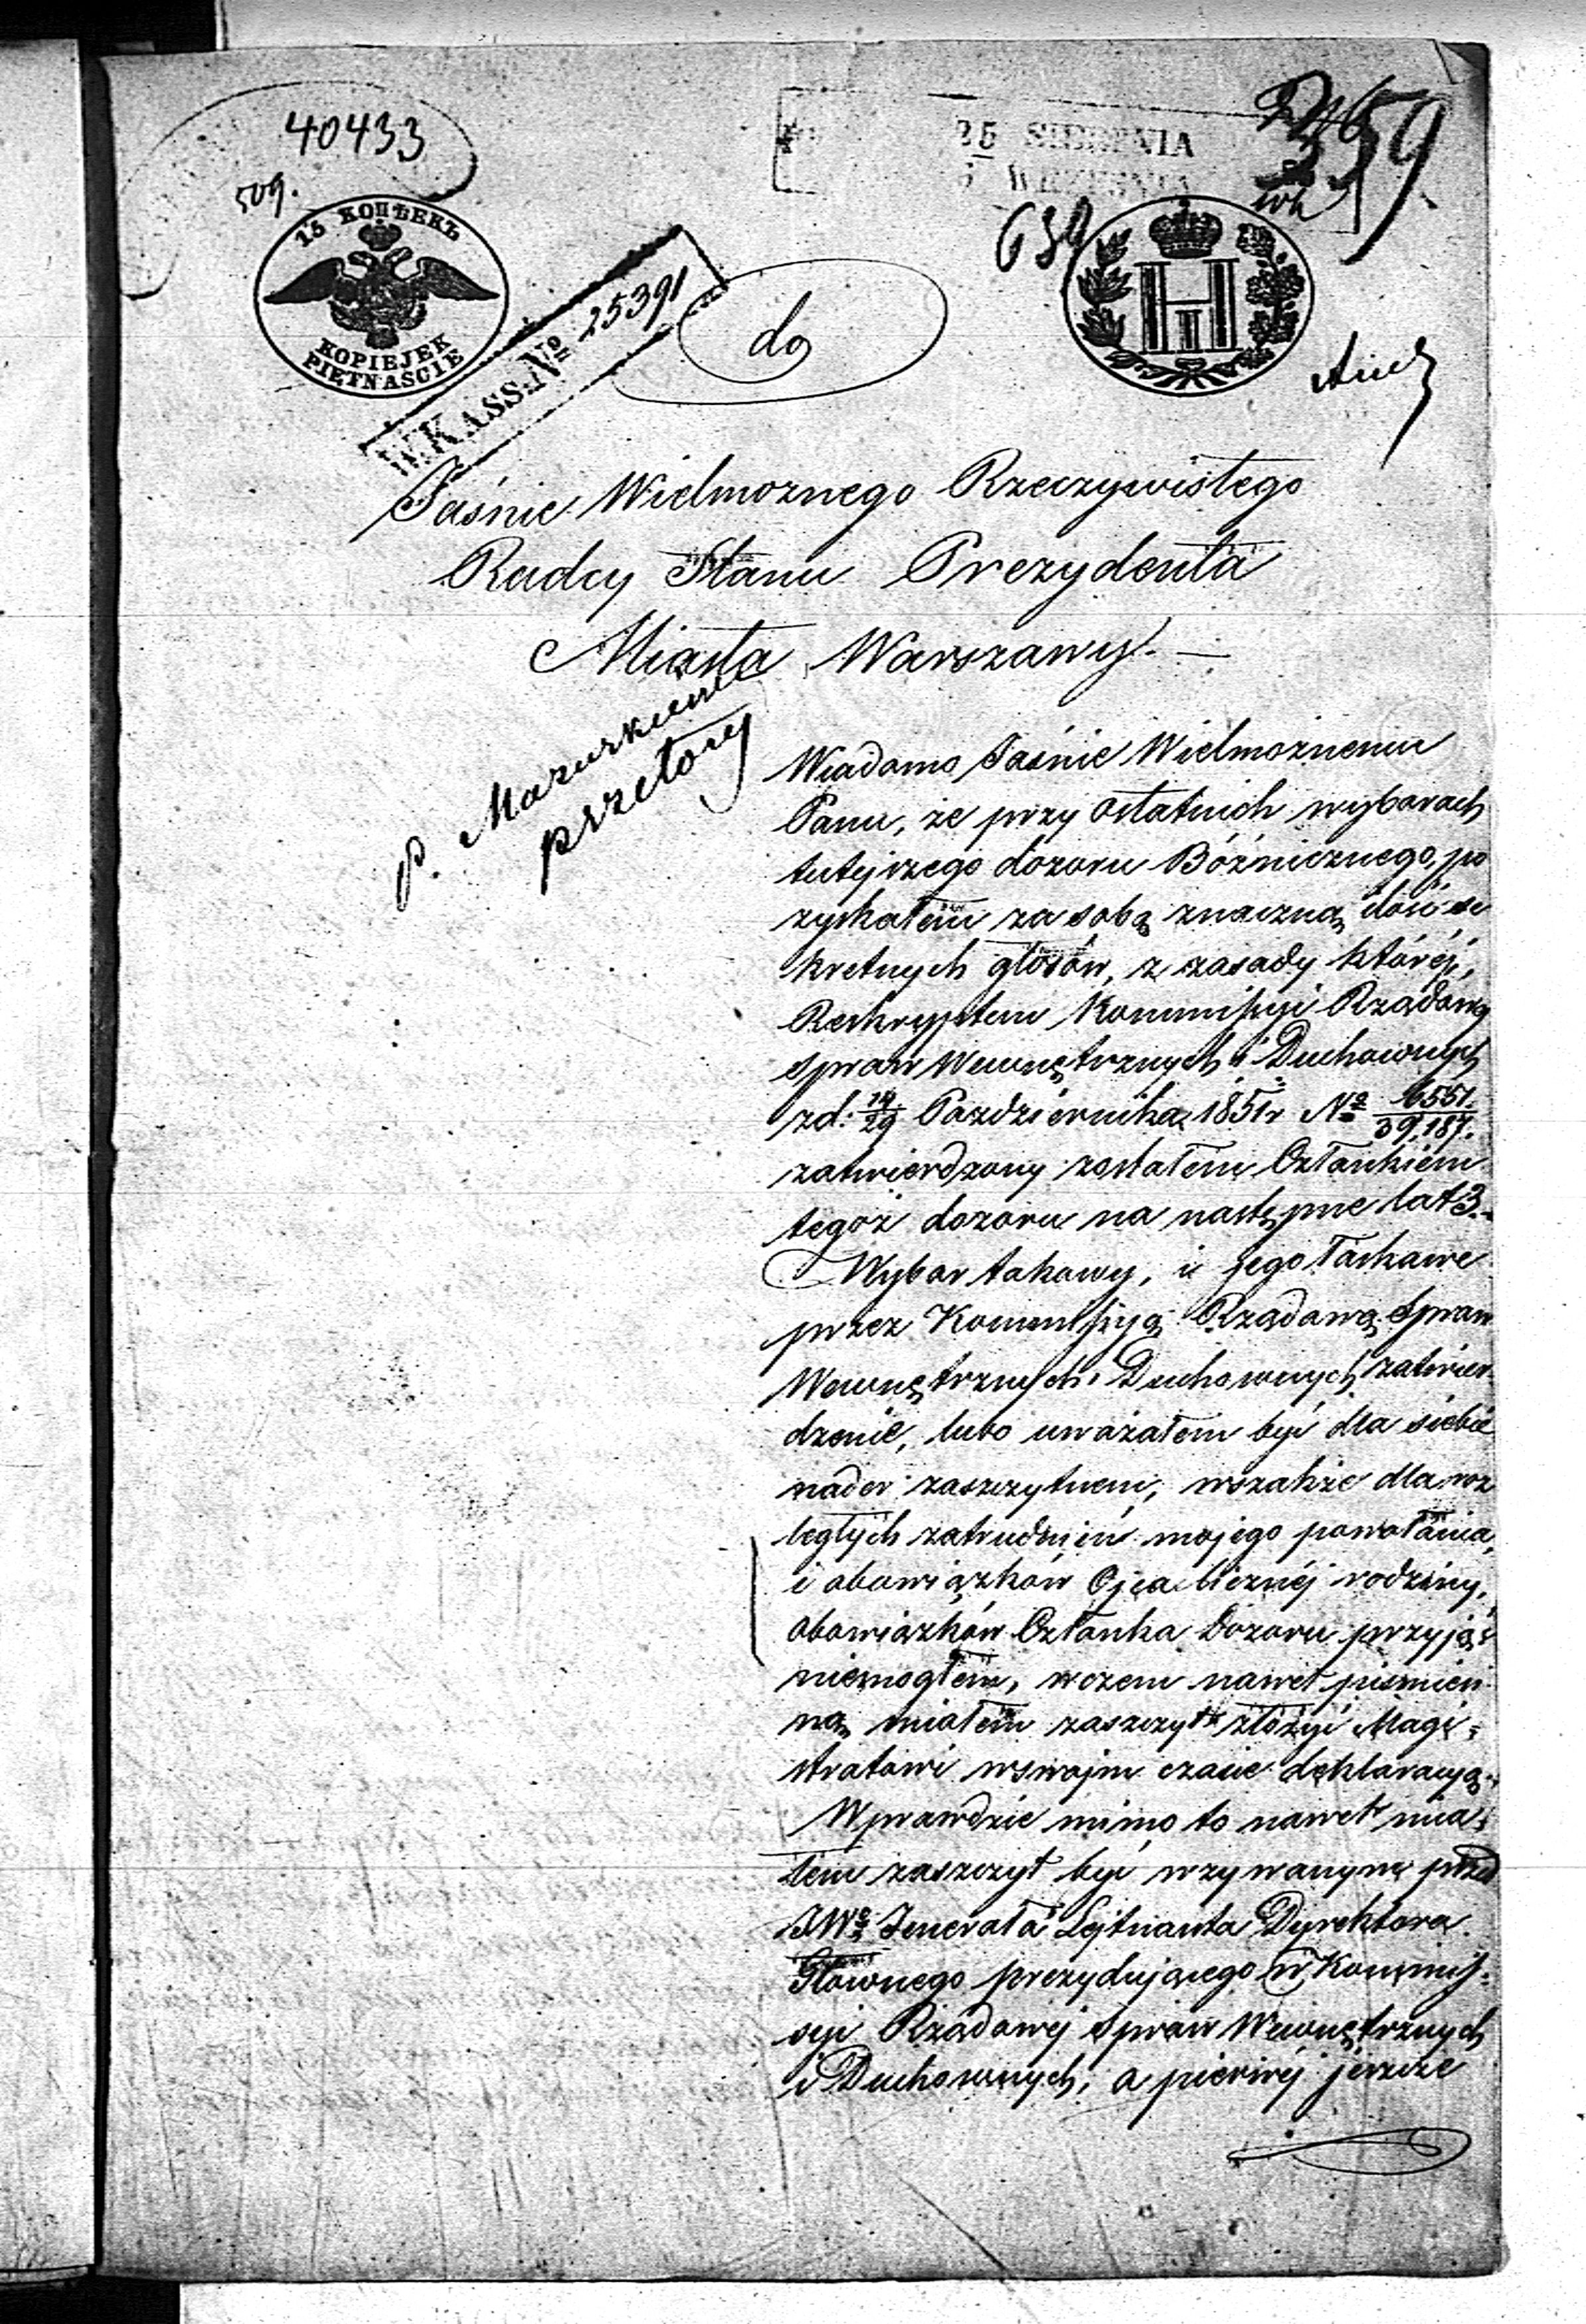 40433
509.
25 SIERPNIA
WRZEŚNIA
359
639
15 КОПѢЕКЪ
KOPIEJEK
PIĘTNAŚCIE
W.KASS.№ 25391
do
Jaśnie Wielmożnego Rzeczywistego
Radcy Stanu Prezydenta
Miasta Warszawy. —
P. Mazurkiewicz
przełoży
Wiadomo Jaśnie Wielmożnemu
Panu, że przy ostatnich wyborach
tutejszego dozoru Bóżnicznego, po
zyskałem za sobą znaczną ilość se
kretnych głosów, z zasady któréj,
Reskryptem Kommissyi Rządowéj
Spraw Wewnętrznych i Duchownych
z d: 17/29 Października 1851 r № 6551./39,187.
zatwierdzony zostałem Członkiem
tegoż dozoru na następne lat 3.
Wybor takowy, i jego łaskawe
przez Kommissyą Rządową Spraw
Wewnętrznych i Duchownych zatwier
dzenie, lubo uważałem być dla siebie
nader zaszczytnem, wszakże dla roz
ległych zatrudnień mojego powołania,
i obowiązków Ojca licznéj rodziny,
obowiązków Członka Dozoru przyjąć
niemogłem, w czem nawet piśmien
ną miałem zaszczyt złożyć Magi=
stratowi w swojm czasie deklaracyą.
Wprawdzie mimo to nawet mia=
łem zaszczyt być wzywanym przed
JWo Jenerała Lejtnanta Dyrektora
Głównego prezydującego w Kommis=
syi Rządowéj Spraw Wewnętrznych
i Duchownych, a pierwéj jeszcze